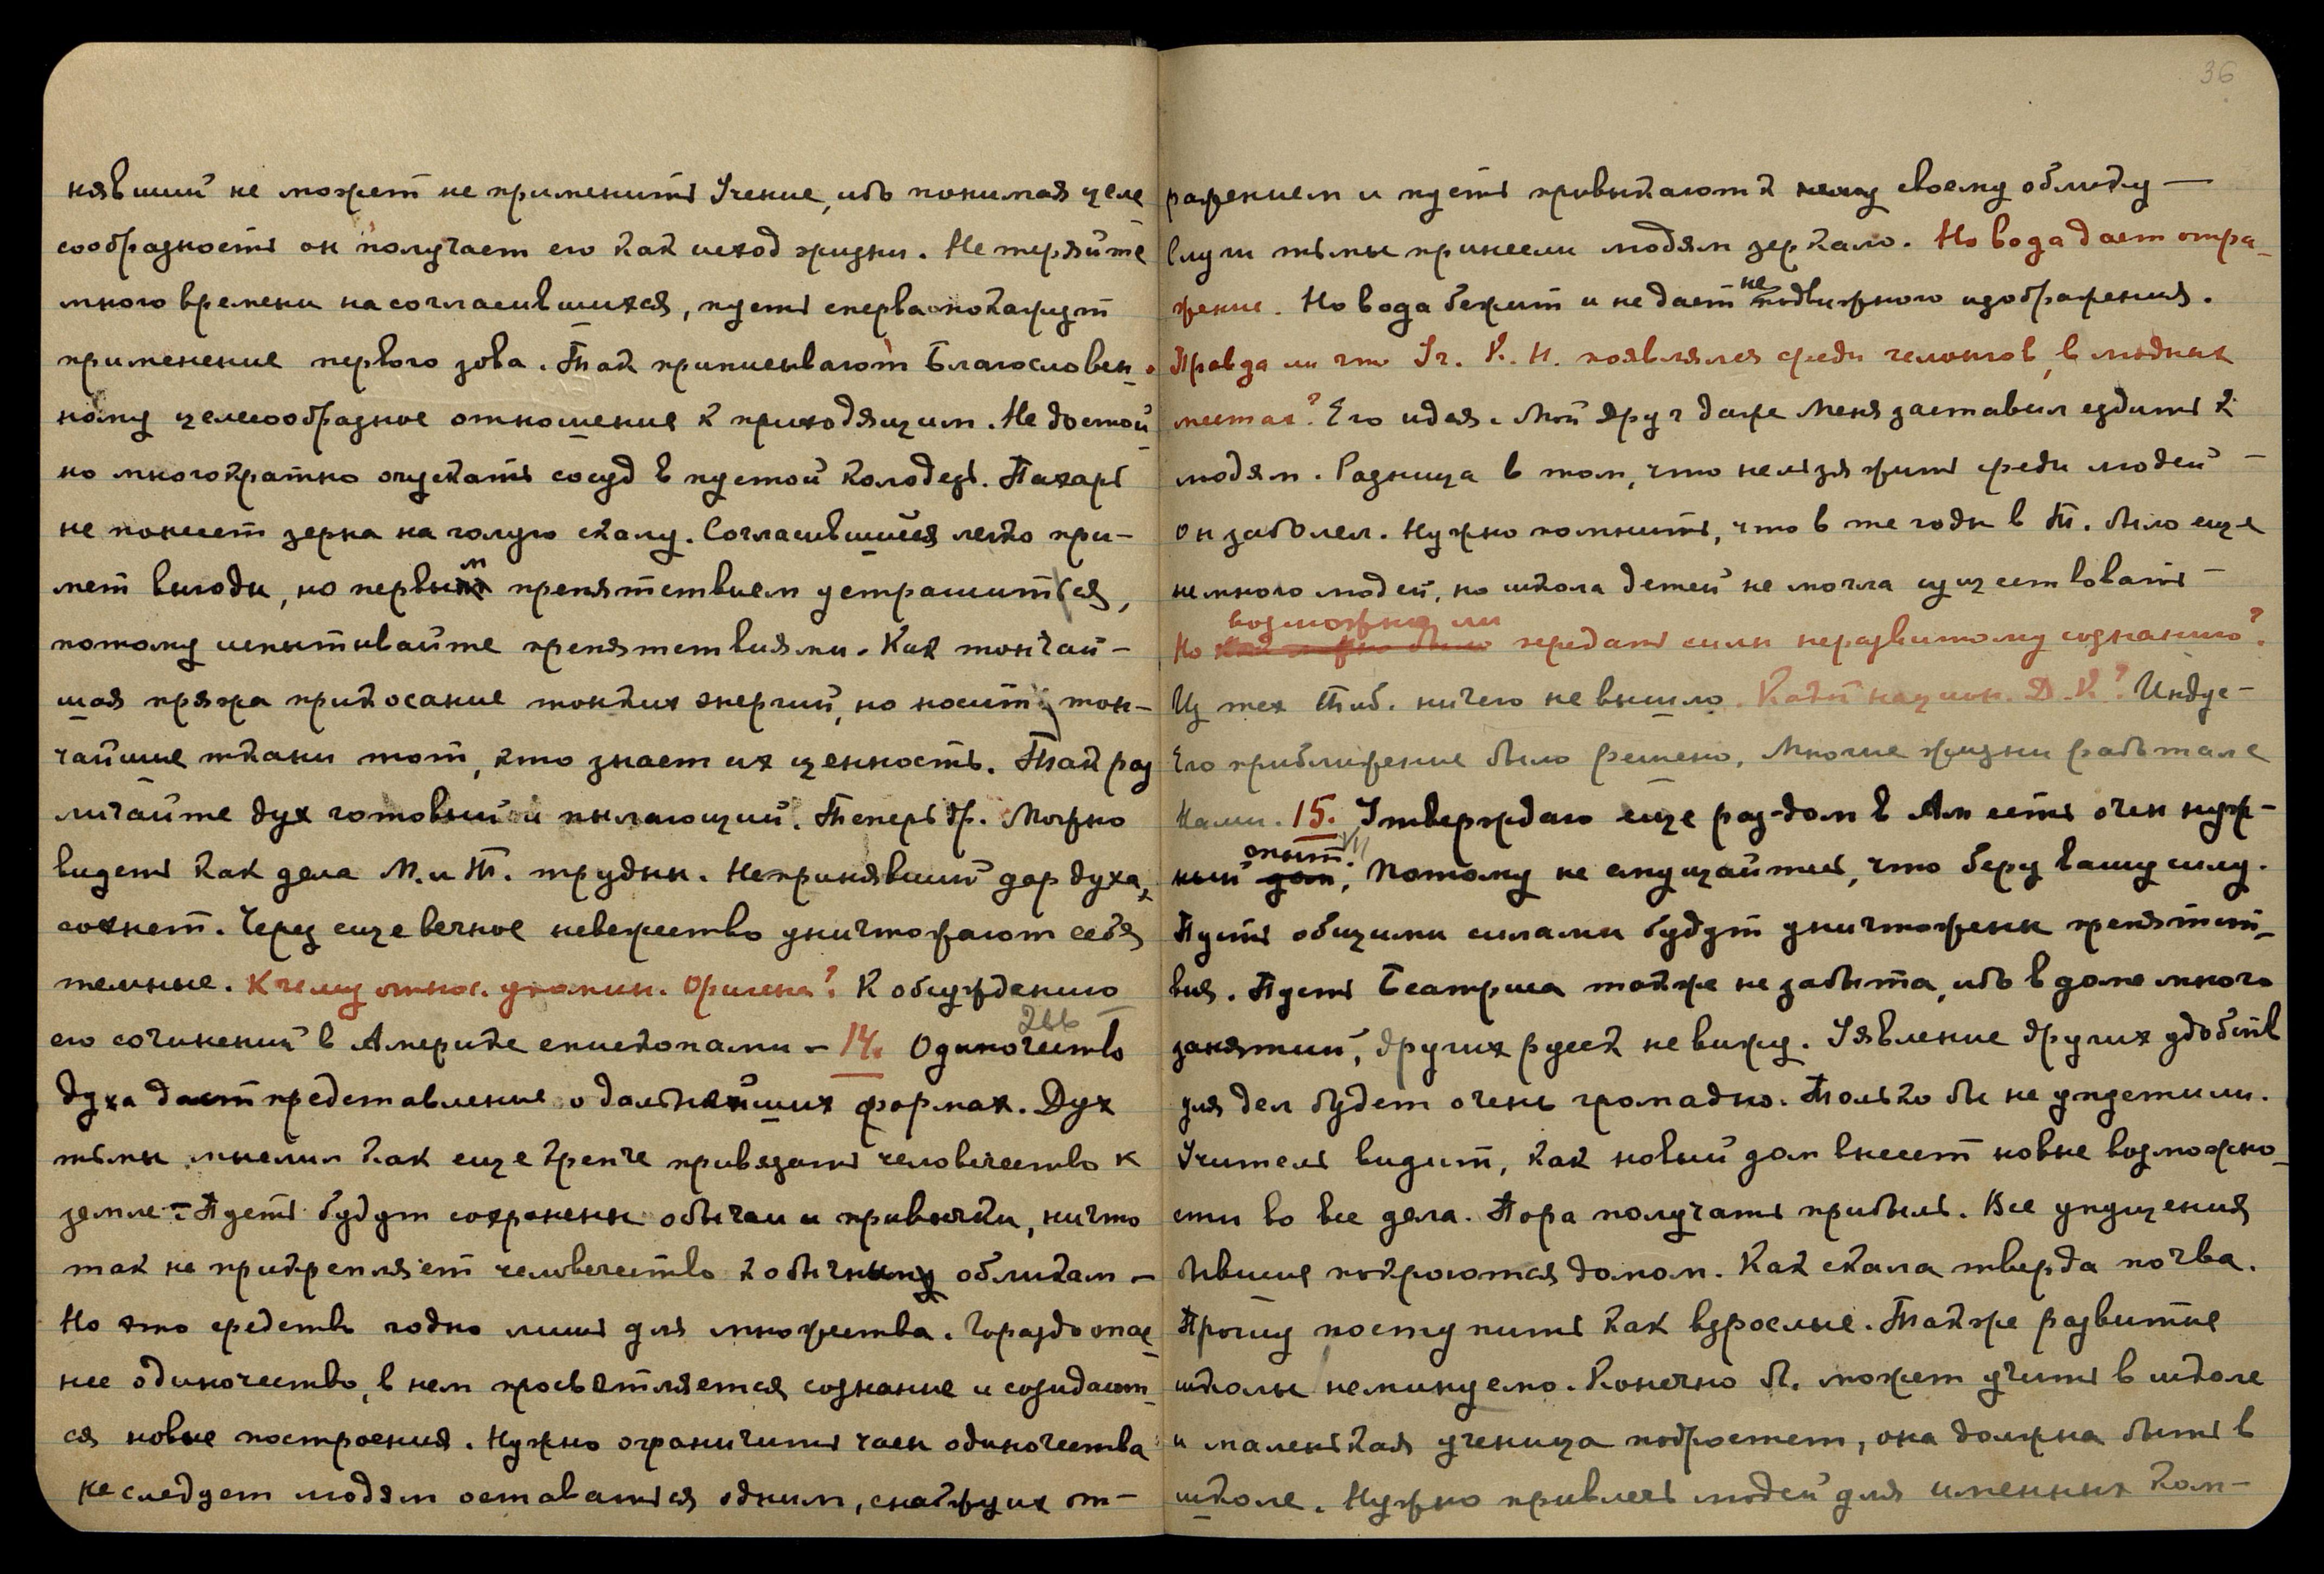 нявший не может не применить Учение, ибо понимая целе
сообразность он получает его как исход жизни. Не теряйте
много времени на согласившихся, пусть сперва покажут
применение первого зова. Так приписывают Благословен-
ному целесообразное отношение к приходящим. Не достой
но многократно опускать сосуд в пустой колодезь. Пахарь
не понесет зерна на голую скалу. Согласившийся легко при-
мет выгоды, но первым препятствием устрашится,
потому испытывайте препятствиями. Как тончай-
шая пряжа прикасание тонких энергий, но носить тон-
чайшие ткани тот, кто знает их ценность. Так раз
личайте дух готовый и пылающий. Теперь др. Можно
видеть как дела М. и Т. трудны. Непринявший дар духа,
сохнет. Через еще вечное невежество уничтожают себя
темные. К чему относ. упомин. Оригена? К обсуждению
его сочинений в Америке епископами – 14. Одиночество
266
духа дает представление о дальнейших формах. Дух
тьмы мыслил как еще крепче привязать человечество к
земле – Пусть будут сохранены обычаи и привычки, ничто
так не прикрепляет человечество к обычным обликам –
Но это средство годно лишь для множества. Гораздо опас
нее одиночество, в нем просветляется сознание и созидают-
ся новые построения. Нужно ограничить часы одиночества
не следует людям оставаться одним, снабжу их от-
36
ражением и пусть привыкают к своему облику –
Слуги тьмы принесли людям зеркало. Но вода дает отра-
жение. Но вода бежит и не дает неподвижного изображения.
Правда ли что Уч. К. Н. появлялся среди челонгов, в людных
местах? Его идея. Мой друг даже Меня заставил ездить к
людям. Разница в том, что нельзя жить среди людей –
он заболел. Нужно помнить, что в те годы в Т. было еще
немного людей, но школа детей не могла существовать –
возможно ли
Но как можно было передать силы неразвитому сознанию?
Из тех Тиб. ничего не вышло. Индус –
Его приближение было решено. Многие жизни работали
Нами. 15. Утверждаю еще раз – дом в Ам есть очен нуж-
опыт.
ный дом, Потому не смущайтесь, что беру вашу силу.
Пусть общими силами будут уничтожены препятст-
вия. Пусть Беатриса также не забыта, ибо в доме много
занятий, других русск не вижу. Уявление других удобств
для дел будет очень громадно. Только бы не упустили.
Учитель видит, как новый дом внесет новые возможно-
сти во все дела. Пора получать прибыль. Все упущения
бывшие покроются домом. Как скала тверда почва.
Прошу поступить как взрослые. Также развитие
школы неминуемо. Конечно Л. может учить в школе
и маленькая ученица подрастет, она должна быть в
школе. Нужно привлечь людей для именных ком-